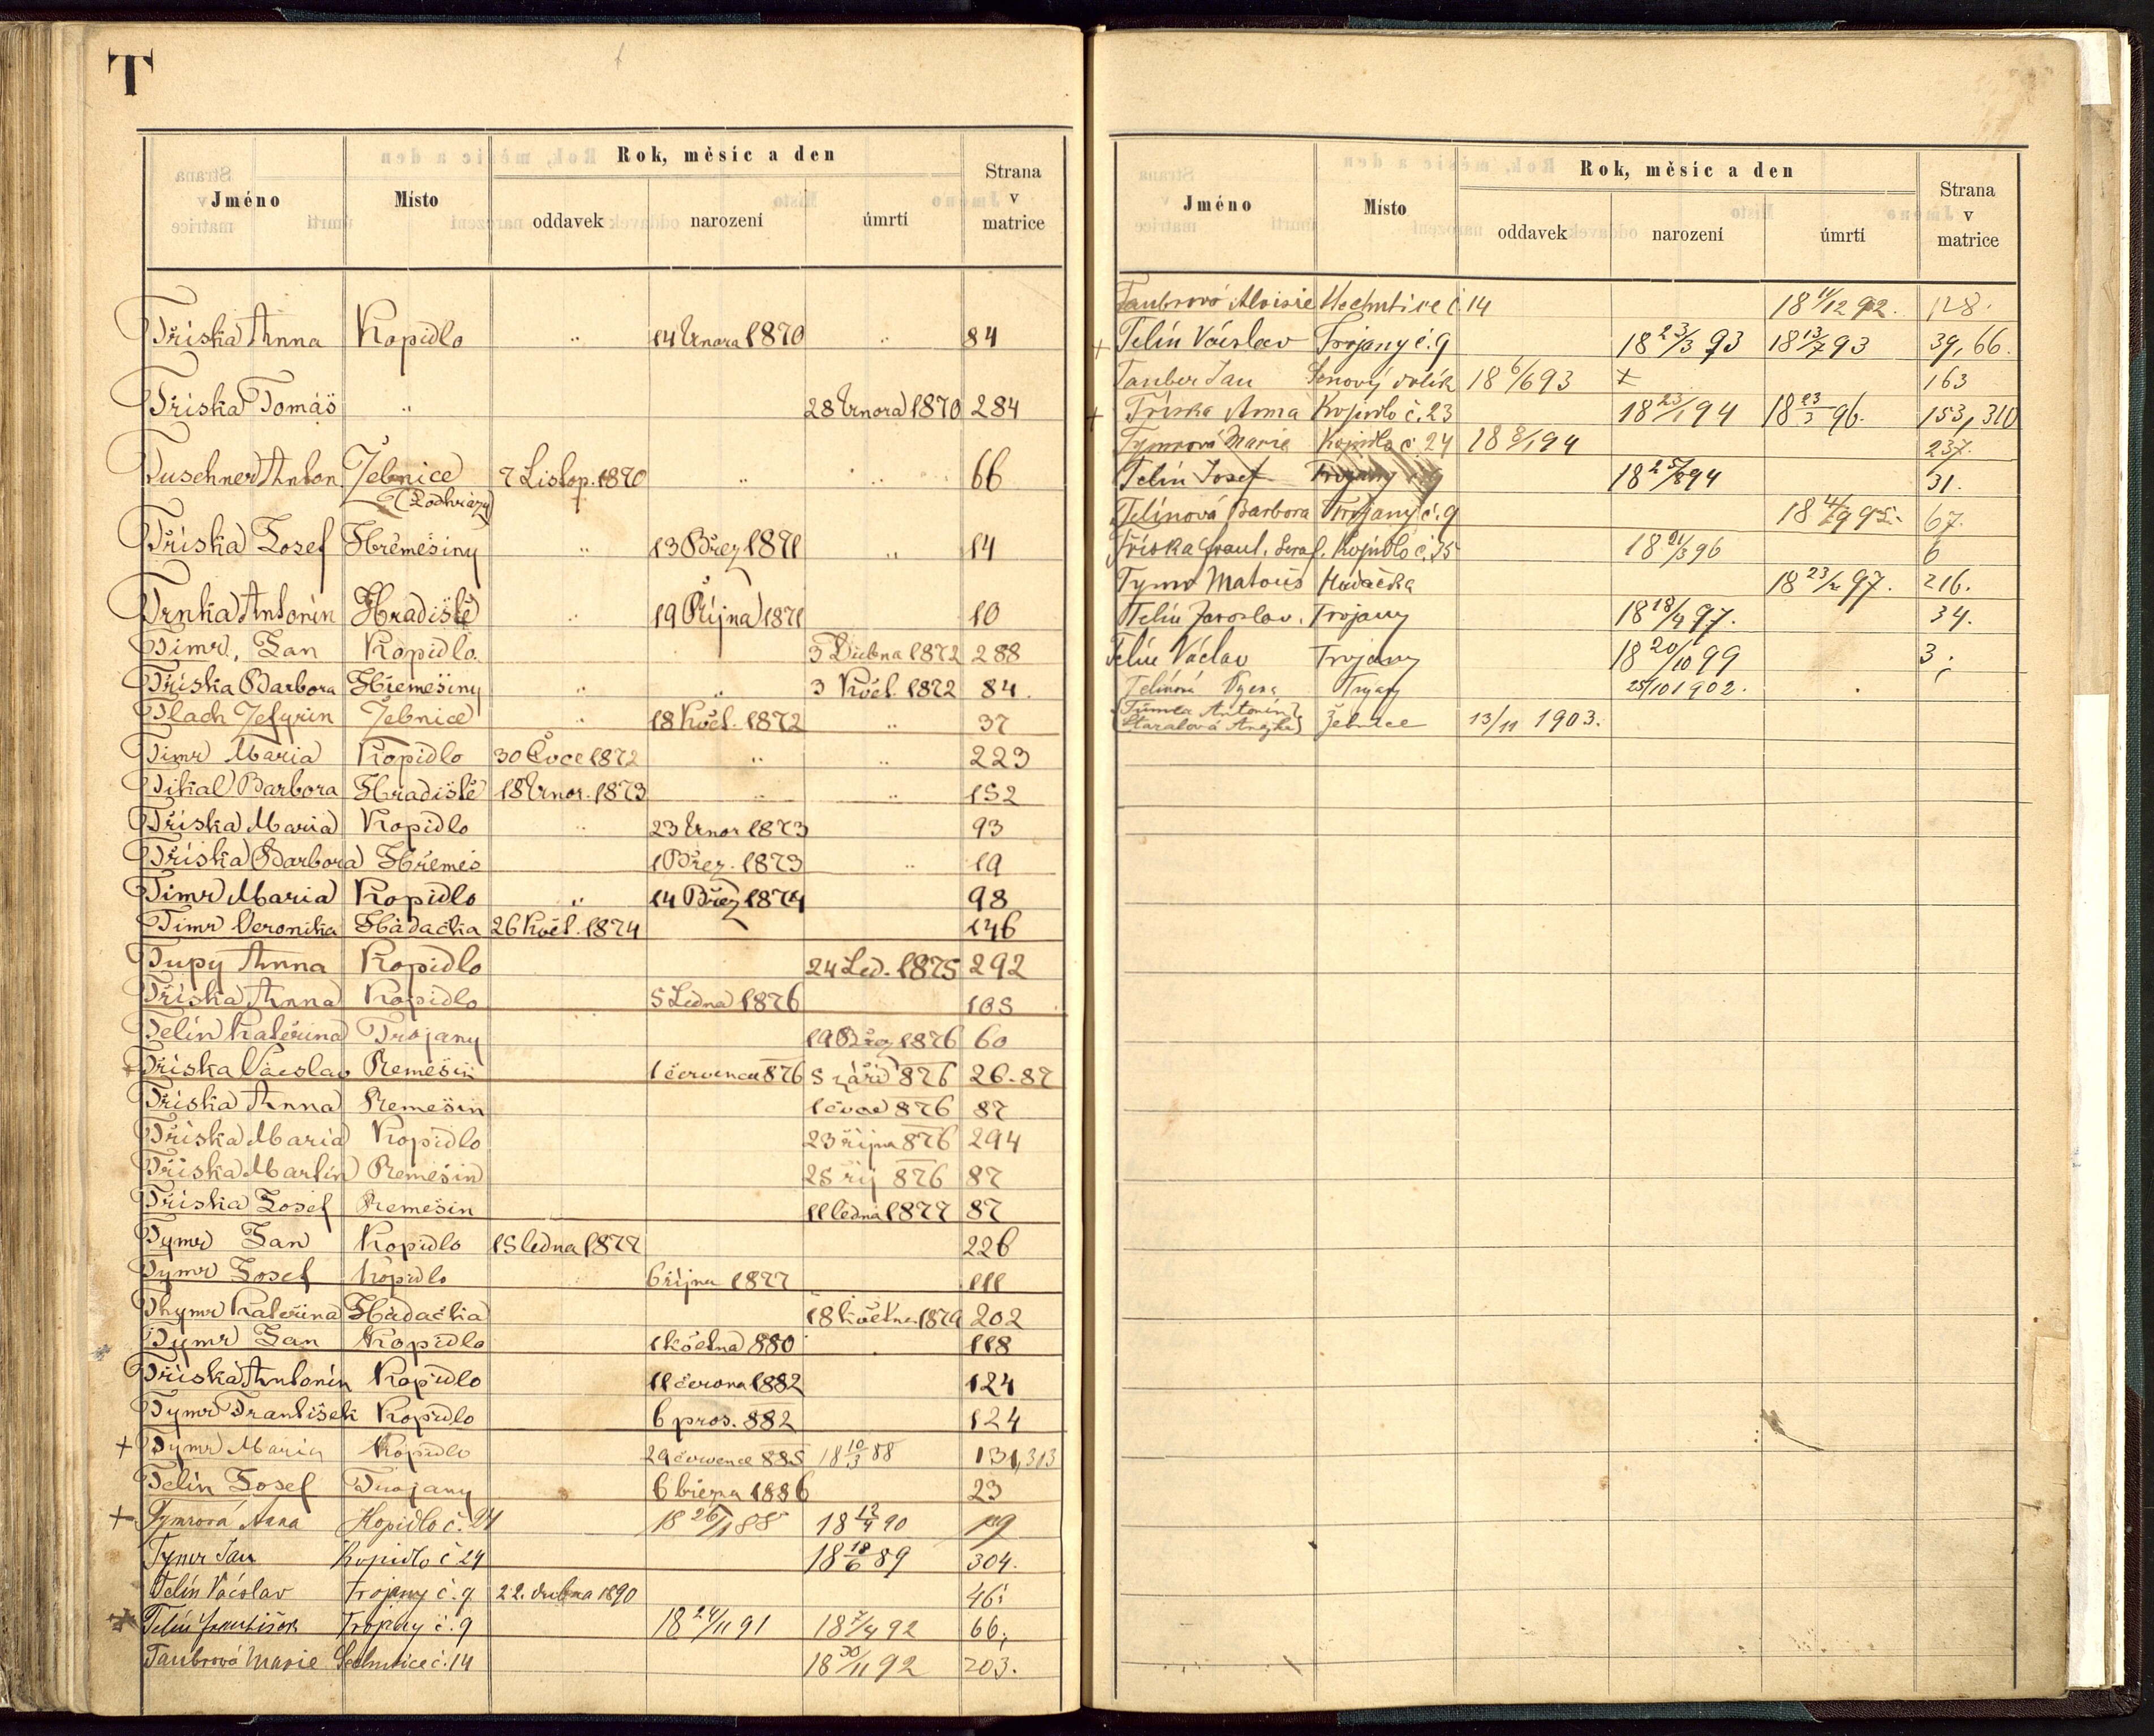 T
Jméno Místo Rok, měsíc a den oddavek narození úmrtí Strana v matrice
Tříska Anna Kopidlo " 14 Února 1870 " 84
Tříska Tomáš " 28 Února 1870 284
Tuschner Anton Žebnice 7 Listop. 1870 " " 66
(Podhrázy)
Tříska Josef Hřemešiny " 13 Břez 1871 " 14
Trnka Antonín Hradiště " 19 Října 1871 10
Timr, Jan Kopidlo. 3 Dubna 1872 288
Tříska Barbora Hřemešiny " " 3 Květ. 1872 84.
Tlach Zefyrin Žebnice " 18 Květ. 1872 " 37
Timr Maria Kopidlo 30 Čvce 1872 " " 223
Tikal Barbora Hradiště 18 Únor. 1873 " " 152
Tříska Maria Kopidlo " 23 Únor 1873 93
Tříska Barbora Hřemeš 1 Břez. 1873 " 19
Timr Maria Kopidlo " 14 Břez 1874 98
Timr Veronika Hádačka 26 Květ. 1874 146
Tupy Anna Kopidlo 24 Led. 1875 292
Tříska Anna Kopidlo 5 Ledna 1876 105
Telín Kateřina Trojany 19 Břez 1876 60
Tříska Václav Řemešín 1 července 876 5 září 876 26-87
Tříska Anna Řemešín 1 čvce 876 87
Tříska Maria Kopidlo 23 října 876 294
Tříska Martin Řemešín 25 říj 876 87
Tříska Josef Řemešín 11 ledna 1877 87
Tymr Jan Kopidlo 15 ledna 1877 226
Tymr Josef Kopidlo 6 října 1877 111
Thymr Kateřina Hádačka 18 Května 1879 202
Tymr Jan Kopidlo 1 května 880 118
Tříska Antonín Kopidlo 11 června 1882 124
Tymr František Kopidlo 6 pros. 882 124
+ Tymr Maria Kopidlo 29 července 885 18 10/3 88 131, 313
Telín Josef Trojany 6 března 1886 23
+ Tymrová Anna Kopidlo č. 24 18 26/1 88 18 12/4 90
Tymr Jan Kopidlo č 24 18 18/6 89 304.
Telín Václav Trojany č. 9 22. dubna 1890 46
Telín František Trojany č. 9 18 24/11 91 18 7/4 92 66
Taubrová Marie Sechutice č. 14 18 30/11 92 203.
Jméno Místo Rok, měsíc a den oddavek narození úmrtí Strana v matrice
Taubrová Aloisie č. 14 18 11/12 92. 128.
+ Telín Václav Trojany č. 9 18 23/3 93 18 13/7 93 39, 66.
Tauber Jan 18 6/6 93 163
+ Tříska Anna Kopidlo č. 23 18 23/1 94 18 23/3 96. 153, 310
Tymrová Marie Kopidlo č. 24 18 8/1 94 237.
Telín Josef Trojany č. 9 18 25/8 94 31.
Telínová Barbora Trojany č. 9 18 4/9 95. 67.
Tříska Frant. Seraf. Kopidlo č. 35 18 21/3 96 6
Tymr Matouš Hádačka 18 23/2 97. 216.
Telín Jaroslav. Trojany 18 18/4 97. 34.
Telín Václav Trojany 18 20/10 99 3
Telínová Trojany 25/10 1902.
(Tůmca Antonín)
(Staralová Anežka) Žebnice 13/11 1903.